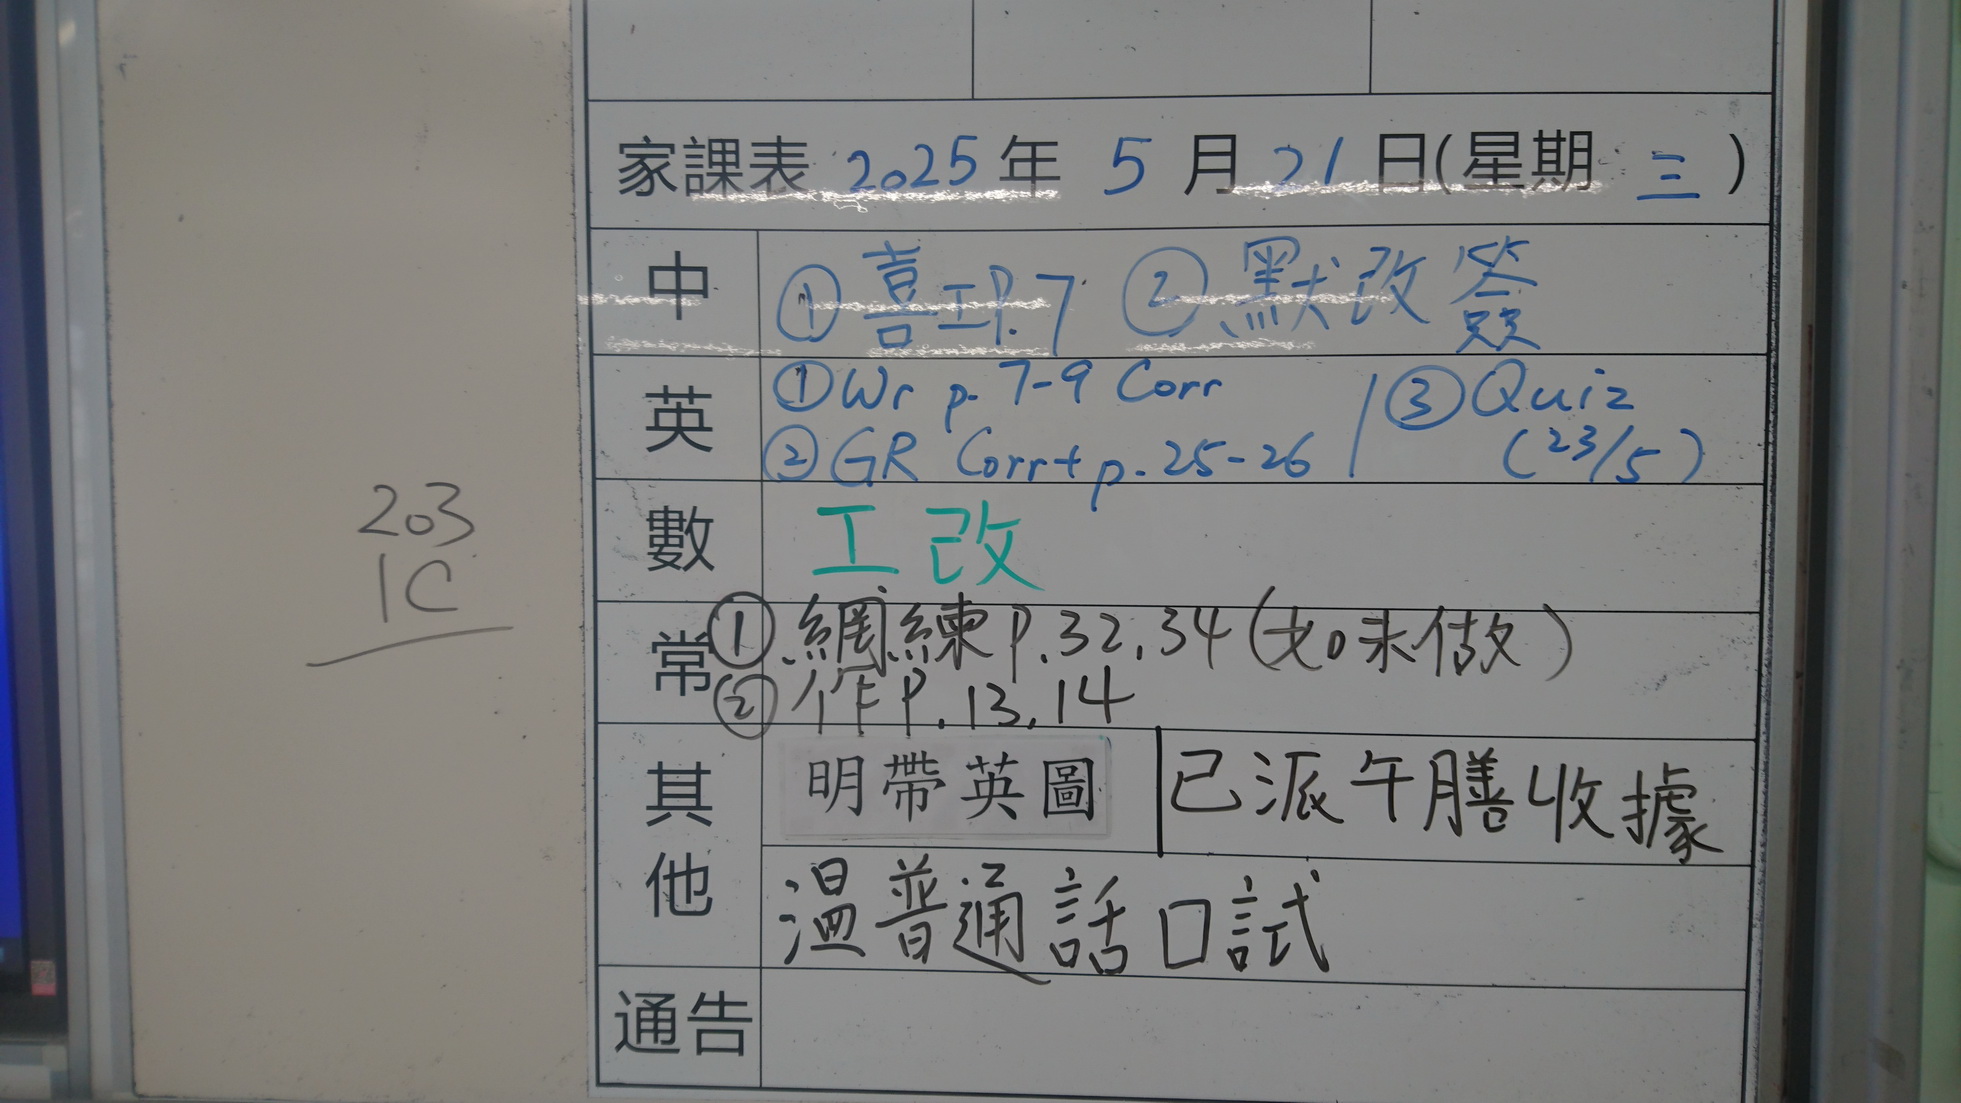 家課表 2025 年 5 月 21 日(星期 三)
中 ①喜工P.7 ②默改簽
英 ①Wr p.7-9 Corr
②GR Corr+p.25-26 / ③Quiz
(23/5)
數 工改
常 ①網練P.32,34(如未做)
②作P.13,14
其他 明帶英圖 | 已派午膳收據
溫普通話口試
通告
203
1C